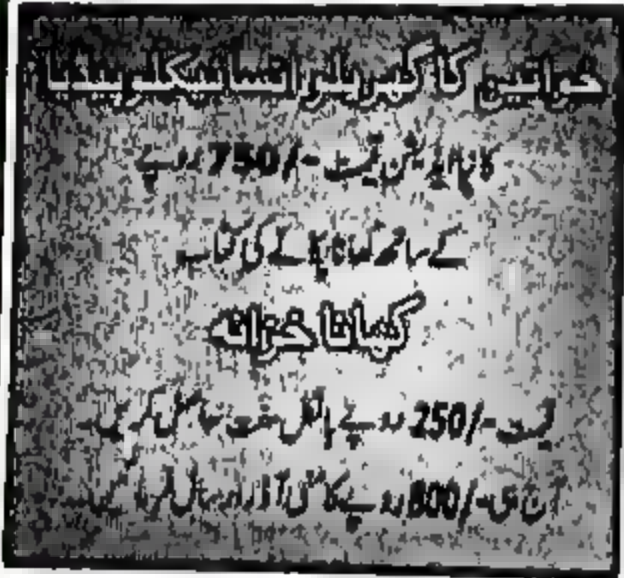 خواتین کا گھریلو انسائیکلوپیڈیا
کا نیا ایڈیشن قیمت -/750 روپے
کے ساتھ کھانا پکانے کی کتاب
کھانا خزانہ
قیمت -/250 روپے بالکل مفت حاصل کریں۔
آج ہی -/800 روپے کا منی آرڈر ارسال فرمائیں۔